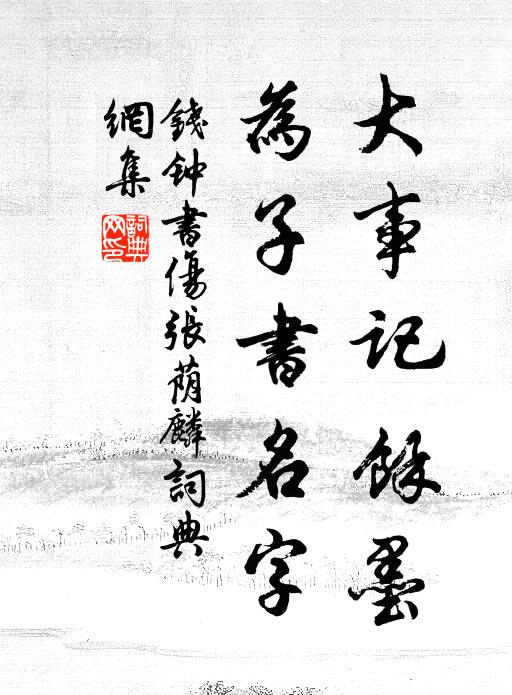 大事記餘墨
為子書名字
錢鍾書傷張蔭麟詞典
網集
詞典網印